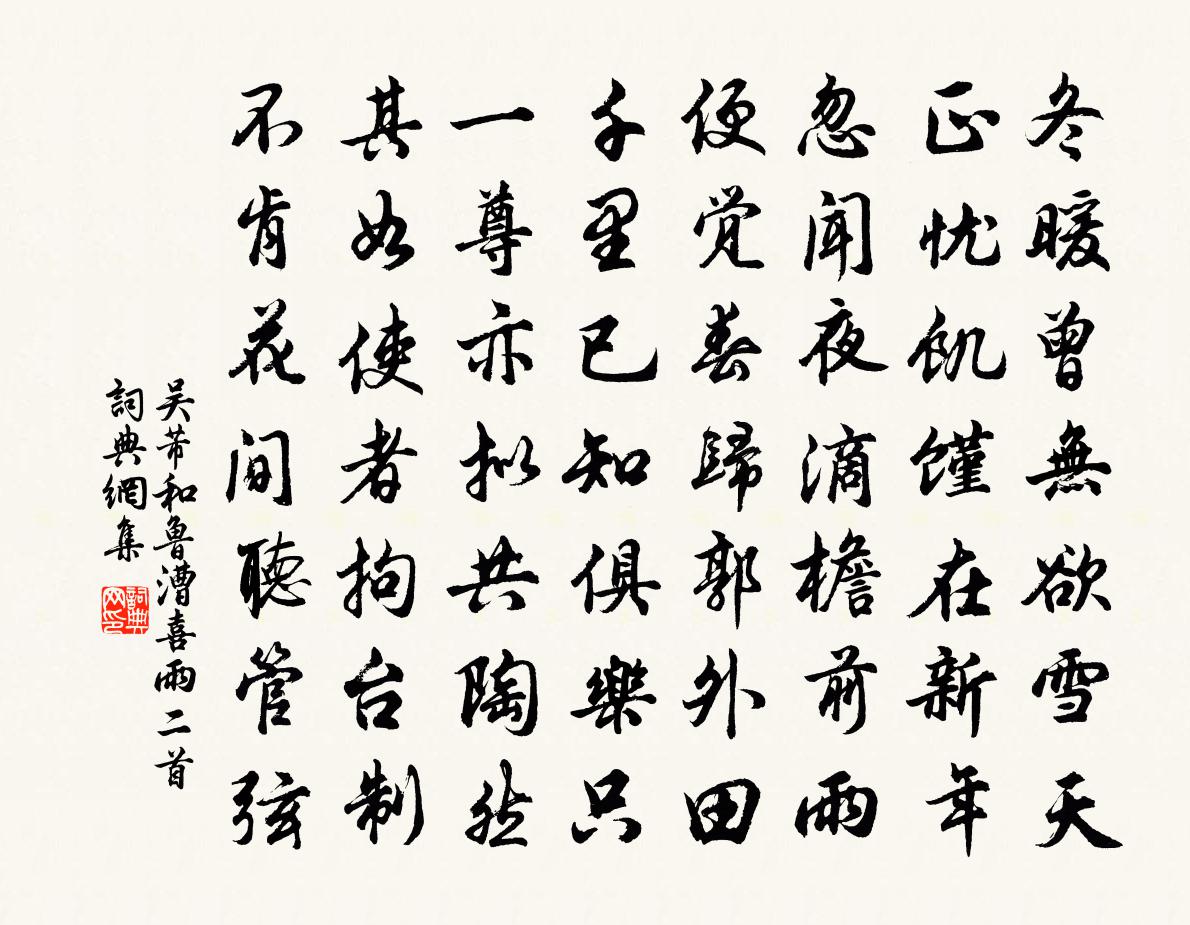 冬暖曾無欲雪天
正忧飢馑在新年
忽闻夜滴檐前雨
便觉春歸郭外田
千里已知俱樂只
一尊亦拟共陶然
其如使者拘台制
不肯花间聽管弦
吴芾和鲁漕喜雨二首
詞典網集
詞典
网印